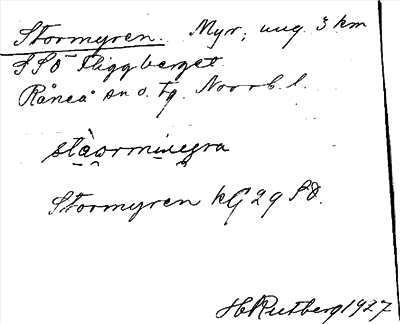 Stormyren. Myr, ung. 3 km
SSÖ Fliggberget
Råneå sn o. tg. Norrb. l.
Stormyren kG 29 SO.
HRutberg 1927